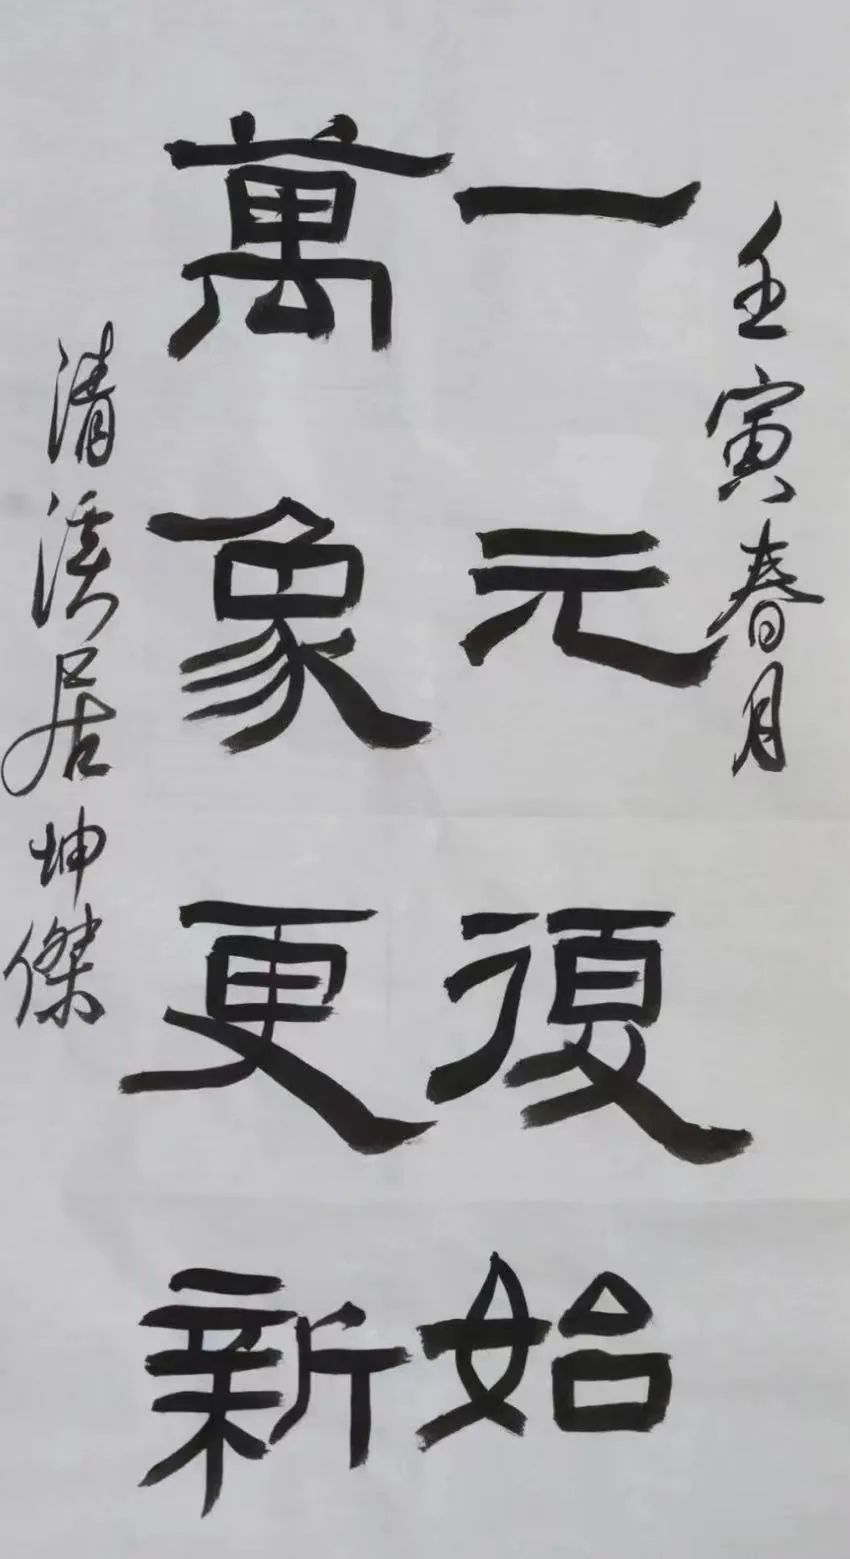 壬寅春月
一元復始
萬象更新
清溪居坤傑